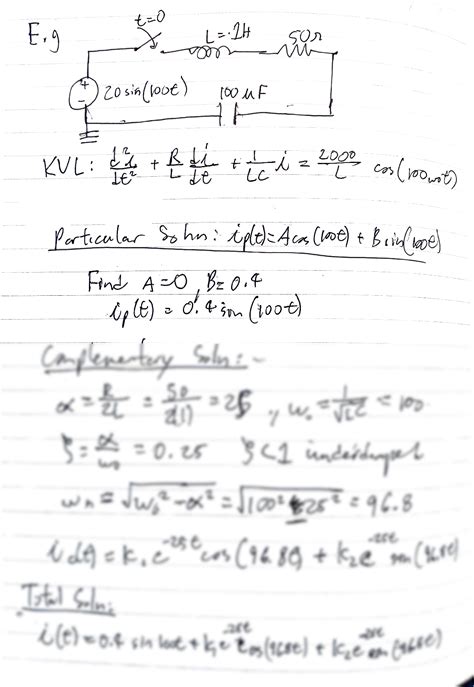 E.g
t=0
L=.1H
50Ω
+
-
20 sin(100t)
100 μF
KVL: d²i/dt² + R/L di/dt + 1/LC i = 2000/L cos(100t)
Particular Soln: ip(t)=Acos(100t) + Bsin(100t)
Find A=0, B=0.4
ip(t) = 0.4 sin(100t)
Complementary Soln:-
α = R/2L = 50/2(1) = 25, w₀ = 1/√LC = 100
ξ = α/w₀ = 0.25 ξ<1 underdamped
wn = √w₀²-α² = √100²-25² = 96.8
i(t) = K₁e^-25t cos(96.8t) + K₂e^-25t sin(96.8t)
Total Soln:
i(t) = 0.4 sin 100t + K₁e^-25t cos(96.8t) + K₂e^-25t sin(96.8t)